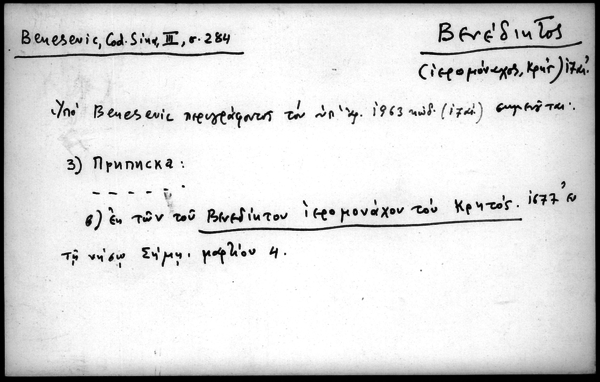 Benesevic, Cod. Sina, III, σ. 284
Βενέδικτος
(ἱερομόναχος, Κρής) ιζ΄ αἰ.
Ὑπό Benesevic περιγράφοντος τόν ὑπ' ἀρ. 1963 κώδ. (ιζ΄ αἰ) σημειοῦται:
3) Приписка:
- - - - - -
β) ἐκ τῶν τοῦ Βενεδίκτου ἱερομονάχου τοῦ Κρητός. 1677 ἐν
τῇ νήσῳ Σύμῃ. μαρτίου 4.